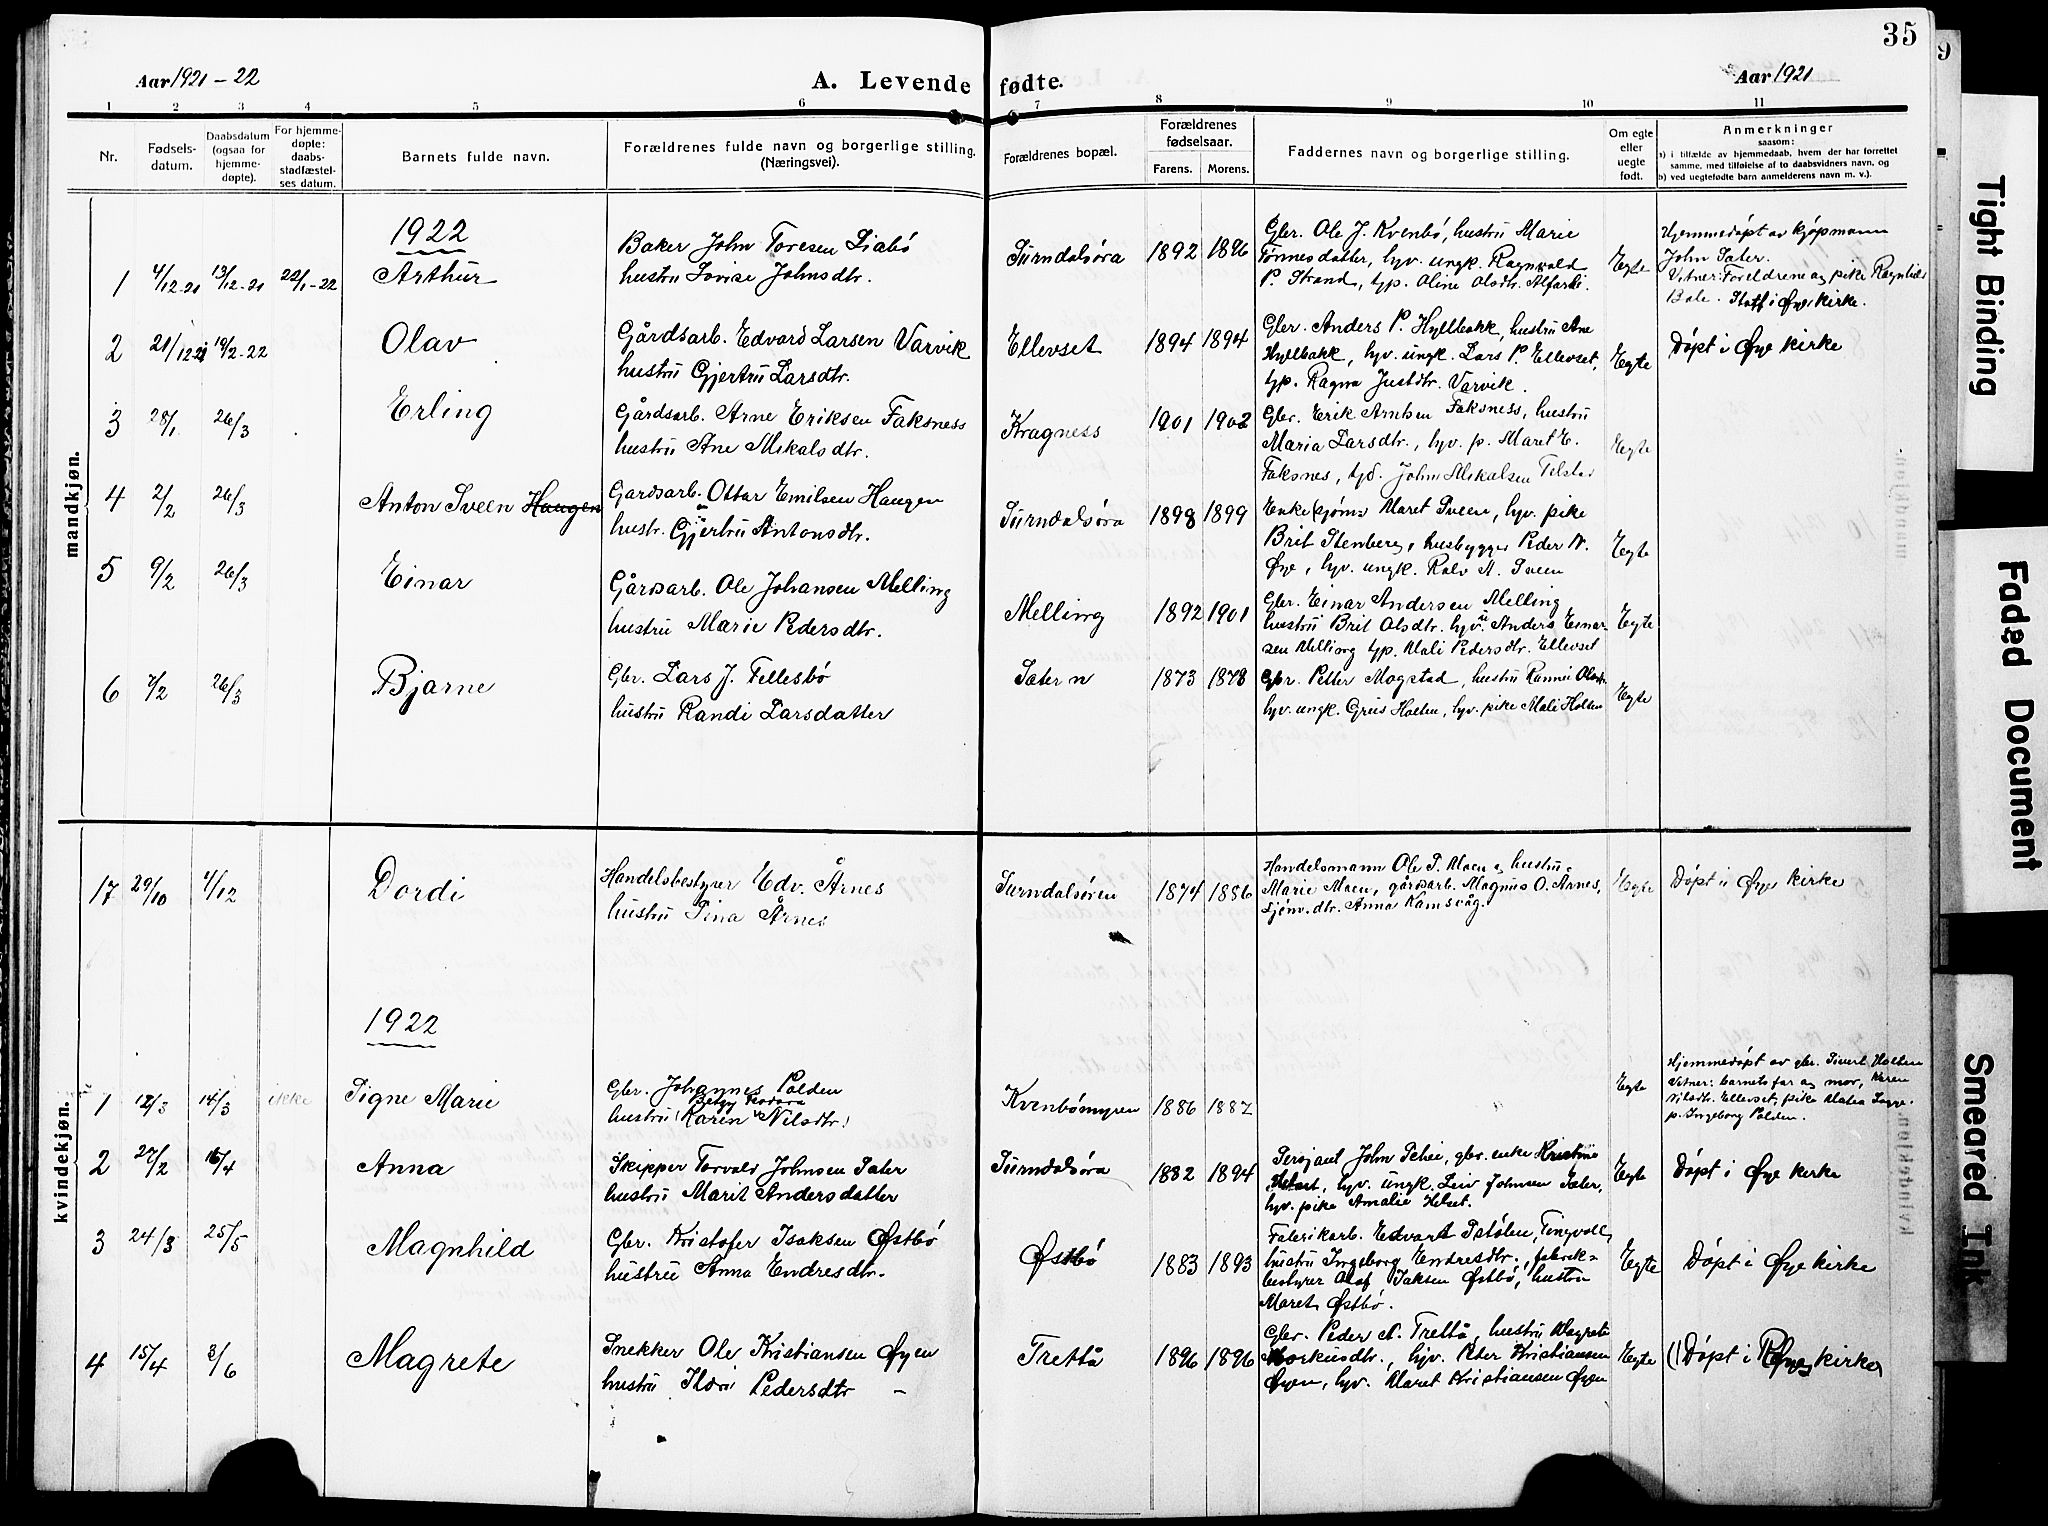 35
Aar 1921-22
A. Levende fødte.
Aar 1921
1 2 3 4 5 6 7 8 9 10 11
Nr.
Fødsels-
datum.
Daabsdatum
(ogsaa for
hjemme-
døpte).
For hjemme-
døpte:
daabs-
stadfæstel-
ses datum.
Barnets fulde navn.
Forældrenes fulde navn og borgerlige stilling.
(Næringsvei).
Forældrenes bopæl.
Forældrenes
fødselsaar.
Farens. Morens.
Faddernes navn og borgerlige stilling.
Om egte
eller
uegte
født.
Anmerkninger
saasom:
a) i tilfælde av hjemmedaab, hvem der har forrettet
samme, med tilføielse af to daabsvidners navn, og
b) ved uegtefødte barn anmelderens navn m. v.).
mandkjøn.
1922
1 4/12-21 13/12-21 22/1-22 Arthur
Baker John Toresen Liabö
hustru Lovise Johnsdtr.
Surndalsöra 1892 1896
Gbr. Ole J. Kvenbö, hustru Marie
Tormesdatter, hyv. ungk. Ragnvald
P. Strand, typ. Oline Olsdtr. Alfarhi.
Egte
Hjemmedöpt av kjöpmann
John Sæter.
Vitner: Foreldrene og pike Ragnhild
Bale. Stadf. i Øye kirke.
2 21/12-21 19/2-22 Olav
Gårdsarb. Edvard Larsen Varvik
hustru Gjertru Larsdtr.
Ellevset 1894 1894
Gbr. Anders P. Hyllbakk, hustru Ane
Hyllbakk, hyv. ungk. Lars P. Ellevset,
typ. Ragna Justdtr. Varvik.
Egte
Döpt i Øye kirke
3 28/1 26/3 Erling
Gårdsarb. Arne Eriksen Faksness
hustru Ane Mikalsdtr.
Kragness 1901 1902
Gbr. Erik Arntsen Faksness, hustru
Maria Larsdtr., hyv. p. Maret E.
Faksnes, tyd. John Mikalsen Telstad
Egte
4 2/2 26/3 Anton Sveen Haugen
Gardsarb. Ottar Emilsen Haugen
hustr. Gjertru Antonsdtr.
Surndalsöra 1898 1899
Enke Maret Sveen, hyv. pike
Brit Stenberg, husbygger Peder N.
Øye, hyv. ungk. Rolv A. Sveen
Egte
5 9/2 26/3 Einar
Gårdsarb. Ole Johansen Melling
hustru Marie Pedersdtr.
Melling 1892 1901
Gbr. Einar Andersen Melling
hustru Brit Olsdtr. hyv. Anders Einar-
sen Melling typ. Mali Pedersdtr. Ellevset
Egte
6 7/2 26/3 Bjarne
Gbr. Lars J. Fellesbö
hustru Randi Larsdatter
Sætern 1873 1878
Gbr. Petter Mogstad, hustru Rannei Olsdtr.
hyv. ungk. Gruis Holten, hyv. pike Mali Holten
Egte
kvindekjøn.
17 29/10 4/12 Dordi
Handelsbestyrer Edv. Årnes
hustru Sina Årnes
Surndalsören 1874 1886
Handelsmann Ole P. Moen og hustru
Marie Moen, gårdsarb. Magnus O. Årnes,
Anna Kamsvåg.
Egte
Döpt i Øye kirke
1922
1 12/3 14/3 ikke Signe Marie
Gbr. Johannes Polden
hustru Karen Nilsdtr.
Kvenbömyren 1886 1887
Egte
Hjemmedöpt av gbr. Sivert Holten
Vitner: barnets far og mor, Karen
Nilsdtr. Ellevset, pike
p. Ingeborg Polden.
2 27/2 16/4 Anna
Skipper Torvald Johnsen Sæter
hustru Marit Andersdatter
Surndalsöra 1882 1894
Sersjant John Schei, gbr. enke Kristine
Helset, hyv. ungk. Leiv Johnsen Sæter,
hyv. pike Amalie Helset.
Egte
Döpt i Øye kirke
3 24/3 25/5 Magnhild
Gbr. Kristofer Isaksen Østbö
hustru Anna Endresdtr.
Østbö 1883 1893
Fabrikarb. Edvart Istölen, Tingvoll,
hustru Ingeborg Endresdtr., fabrik-
bestyrer Olaf Isaksen Østbö, hustru
Maret Østbö.
Egte
Döpt i Øye kirke
4 15/4 3/6 Magrete
Snekker Ole Kristiansen Øyen
hustru Ildri Pedersdtr –
Trettå 1896 1896
Gbr. Peder A. Trettå, hustru Magrete
Markusdtr., hyv. Peter Kristiansen
Øyen, hyv. Maret Kristiansen Øyen
Egte
Döpt i Øye kirke
Tight Binding
Faded Document
Smeared Ink